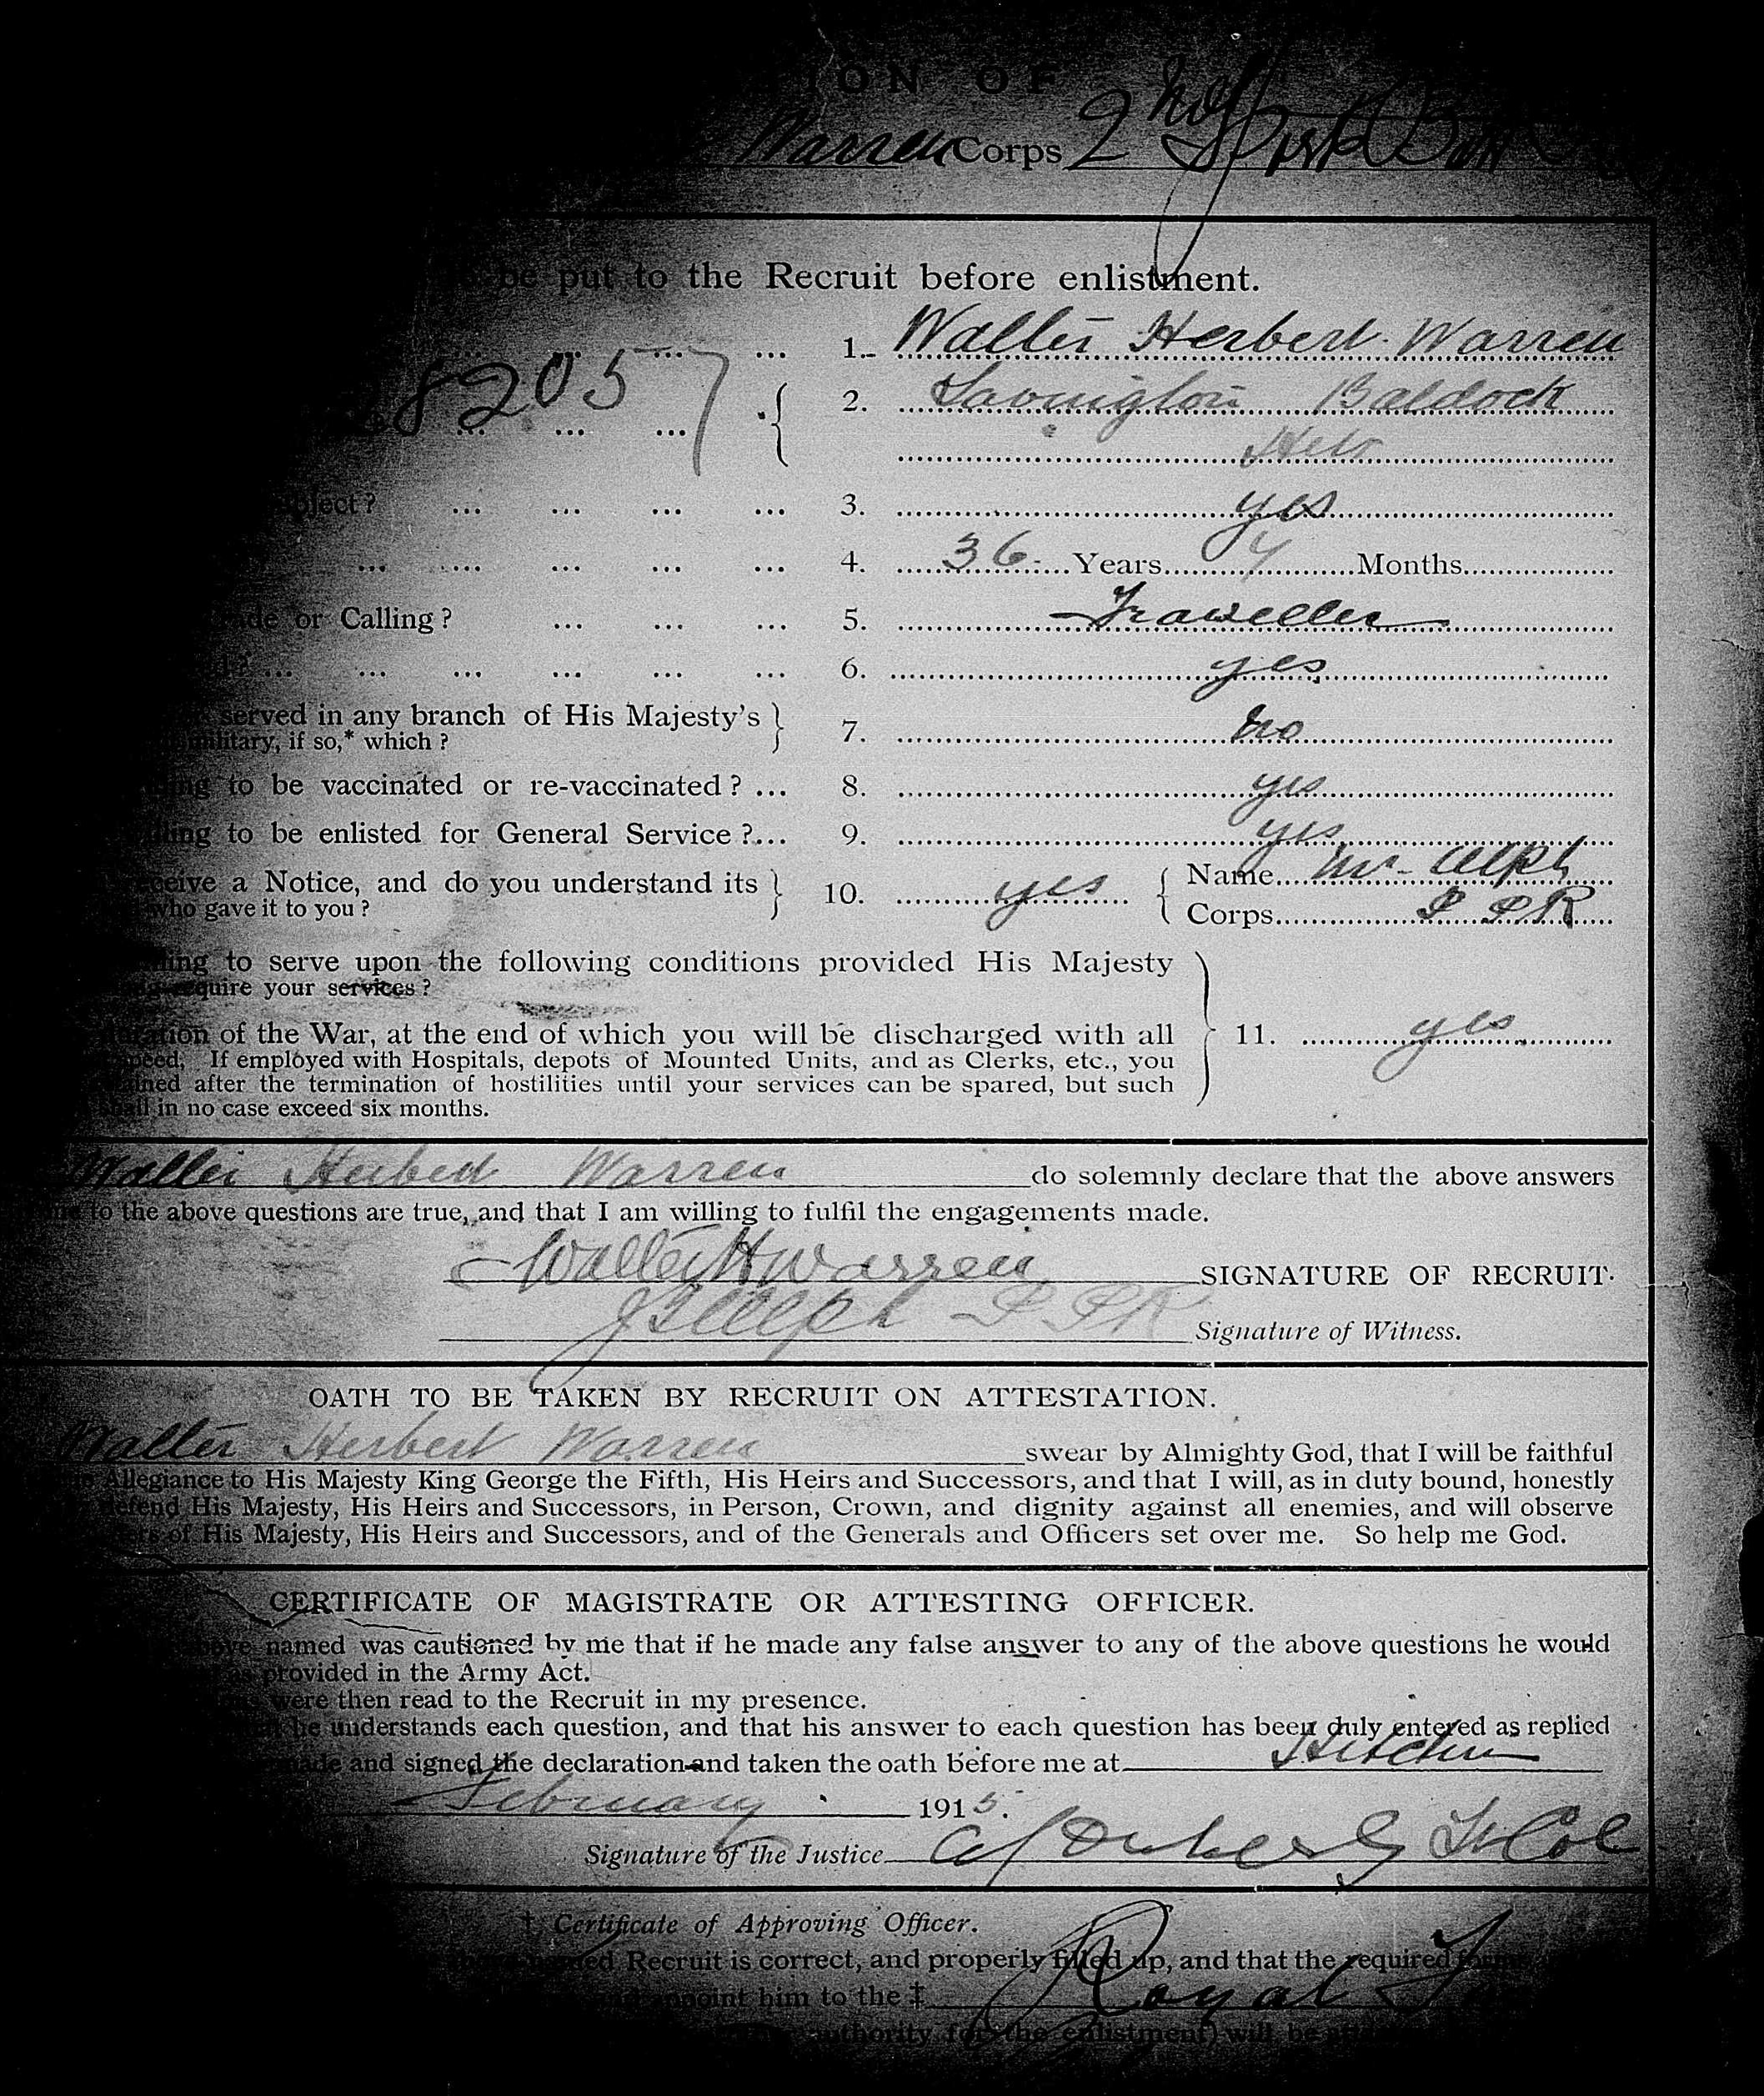 TION OF
Warren Corps 2nd Sports Batt
be put to the Recruit before enlistment.
... ... ... 1. Walter Herbert Warren
8205 ... ... ... 2. Baldock
Herts
subject? ... ... ... ... 3. yes
... ... ... ... ... 4. 36 Years 4 Months
Trade or Calling? ... ... ... 5. Traveller
... ... ... ... ... ... 6. yes
served in any branch of His Majesty's 7. no
military, if so,* which?
to be vaccinated or re-vaccinated? ... 8. yes
to be enlisted for General Service?... 9. yes
receive a Notice, and do you understand its 10. yes Name Mr
who gave it to you? Corps
to serve upon the following conditions provided His Majesty
require your services?
duration of the War, at the end of which you will be discharged with all 11. yes
speed. If employed with Hospitals, depots of Mounted Units, and as Clerks, etc., you
after the termination of hostilities until your services can be spared, but such
shall in no case exceed six months.
Walter Herbert Warren do solemnly declare that the above answers
to the above questions are true, and that I am willing to fulfil the engagements made.
Walter H Warren SIGNATURE OF RECRUIT.
Signature of Witness.
OATH TO BE TAKEN BY RECRUIT ON ATTESTATION.
Walter Herbert Warren swear by Almighty God, that I will be faithful
Allegiance to His Majesty King George the Fifth, His Heirs and Successors, and that I will, as in duty bound, honestly
defend His Majesty, His Heirs and Successors, in Person, Crown, and dignity against all enemies, and will observe
of His Majesty, His Heirs and Successors, and of the Generals and Officers set over me. So help me God.
CERTIFICATE OF MAGISTRATE OR ATTESTING OFFICER.
above named was cautioned by me that if he made any false answer to any of the above questions he would
as provided in the Army Act.
were then read to the Recruit in my presence.
he understands each question, and that his answer to each question has been duly entered as replied
made and signed the declaration and taken the oath before me at Hitchin
February 1915.
Signature of the Justice Lt Col
† Certificate of Approving Officer.
Recruit is correct, and properly filled up, and that the required forms
appoint him to the ‡ Royal
authority for the enlistment) will be